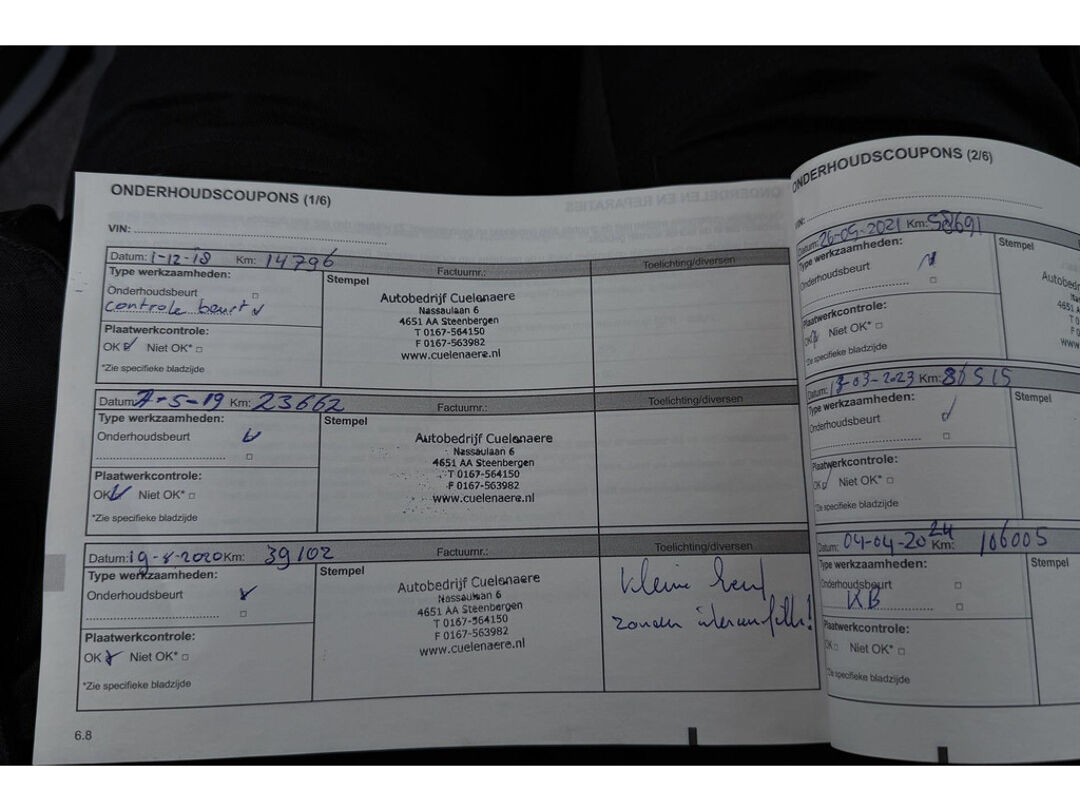 ONDERHOUDSCOUPONS (1/6)
VIN:
Datum: 1-12-18 Km: 14796 Factuurnr.: Toelichting/diversen
Type werkzaamheden:
Stempel
Onderhoudsbeurt
controle beurt
Autobedrijf Cuelenaere
Nassaulaan 6
4651 AA Steenbergen
T 0167-564150
F 0167-563982
www.cuelenaere.nl
Plaatwerkcontrole:
OK Niet OK*
*Zie specifieke bladzijde
Datum: 7-5-19 Km: 23662 Factuurnr.: Toelichting/diversen
Type werkzaamheden:
Stempel
Onderhoudsbeurt
Autobedrijf Cuelenaere
Nassaulaan 6
4651 AA Steenbergen
T 0167-564150
F 0167-563982
www.cuelenaere.nl
Plaatwerkcontrole:
OK Niet OK*
*Zie specifieke bladzijde
Datum: 19-8-2020 Km: 39102 Factuurnr.: Toelichting/diversen
Type werkzaamheden:
Stempel
Onderhoudsbeurt
Autobedrijf Cuelenaere
Nassaulaan 6
4651 AA Steenbergen
T 0167-564150
F 0167-563982
www.cuelenaere.nl
kleine beurt
zonder
Plaatwerkcontrole:
OK Niet OK*
*Zie specifieke bladzijde
6.8
ONDERHOUDSCOUPONS (2/6)
VIN:
Datum: 26-05-2021 Km: 58691
Type werkzaamheden:
Stempel
Onderhoudsbeurt
Plaatwerkcontrole:
OK Niet OK*
*Zie specifieke bladzijde
Datum: -03-2023 Km: 86515
Type werkzaamheden:
Stempel
Onderhoudsbeurt
Plaatwerkcontrole:
OK Niet OK*
*Zie specifieke bladzijde
Datum: 04-04-2024 Km: 106005
Type werkzaamheden:
Stempel
Onderhoudsbeurt
KB
Plaatwerkcontrole:
OK Niet OK*
*Zie specifieke bladzijde